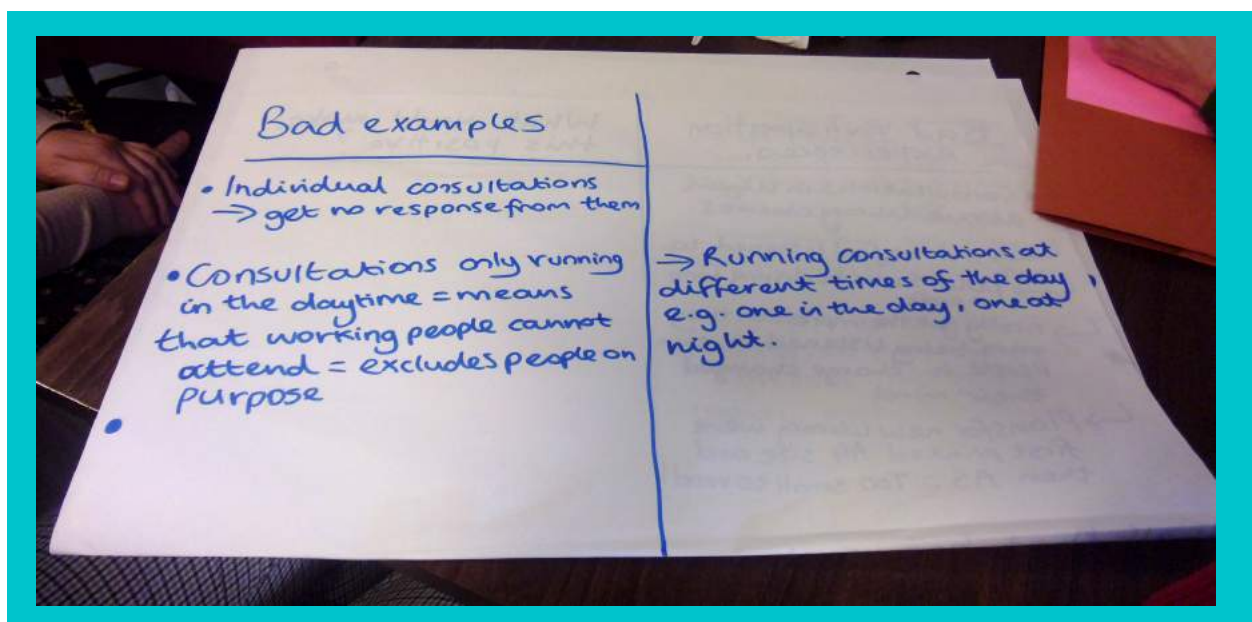 Bad examples
• Individual consultations
→ get no response from them
• Consultations only running
in the daytime = means
that working people cannot
attend = excludes people on
purpose
•
→ Running consultations at
different times of the day,
e.g. one in the day, one at
night.